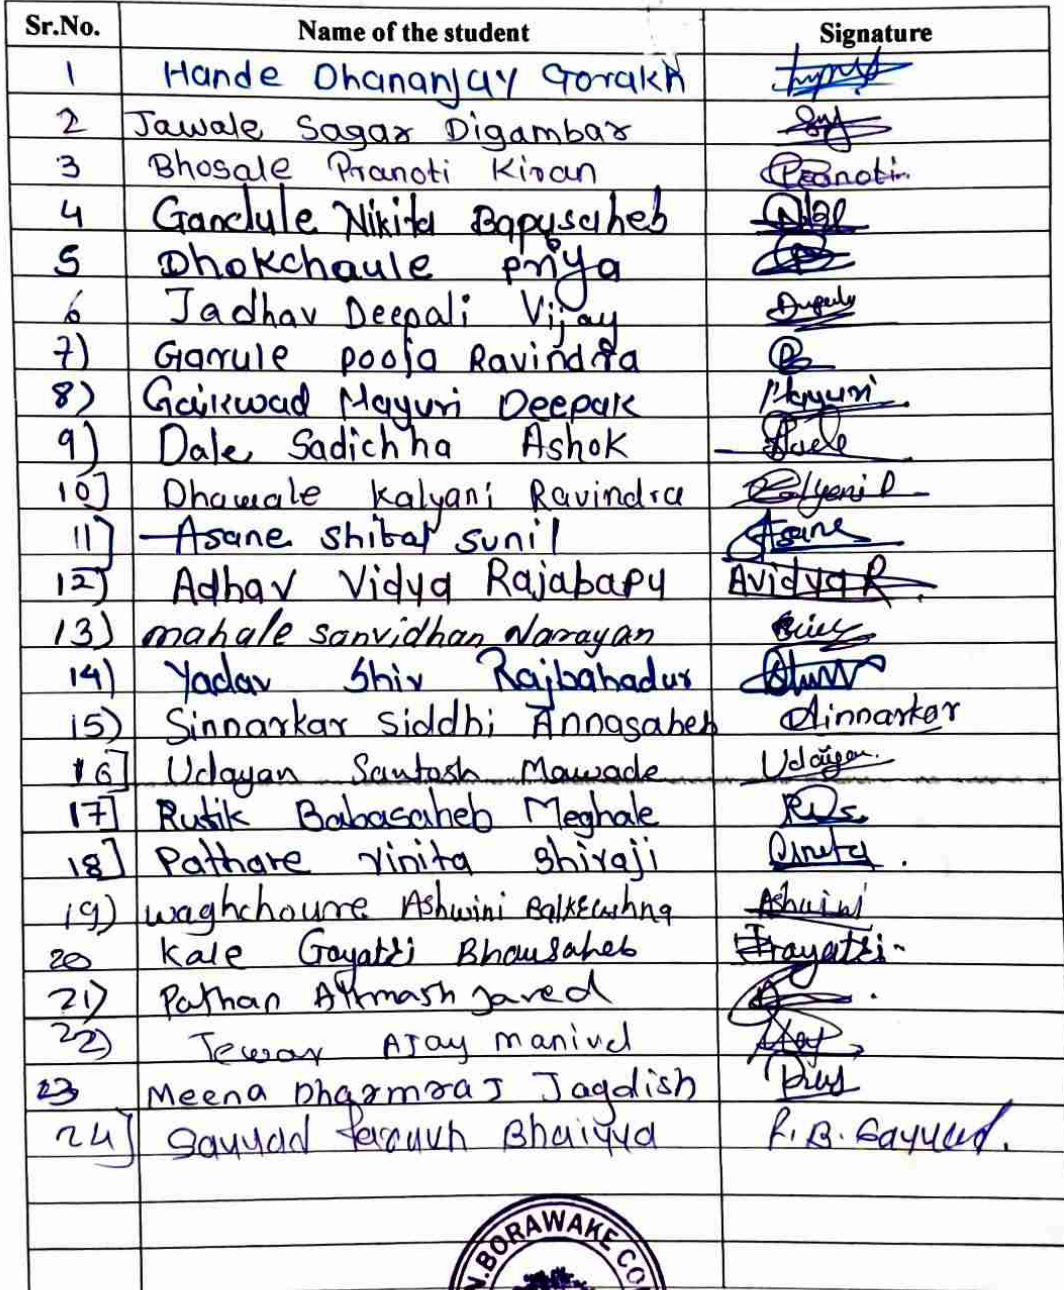 Sr.No. Name of the student Signature
1 Hande Dhananjay Gorakh
2 Jawale Sagar Digambar
3 Bhosale Pranoti Kiran Pranoti
4 Gandule Nikita Bapusaheb
5 Dhokchaule priya
6 Jadhav Deepali Vijay
7) Garule pooja Ravindra
8) Gaikwad Mayuri Deepak Mayuri
9) Dale Sadichha Ashok
10] Dhawale Kalyani Ravindra Kalyani D
11] Asane shital sunil Asane
12) Adhav Vidya Rajabapu Avidya R.
13) mahale sanvidhan Narayan
14) Yadav Shiv Rajbahadur
15) Sinnarkar Siddhi Annasaheb Sinnarkar
16] Udayan Santosh Mawade Udayan.
17] Rutik Babasaheb Meghale
18] Pathare vinita Shivaji
19) waghchoure Ashwini Ashwini
20 Kale Gayatri Bhausaheb Gayatri
21) Pathan Javed
22) Tewar Ajay
23 Meena Dharmraj Jagdish
24] Sayyad Bhaiyya F. B. Sayyad.
N.BORAWAKE CO